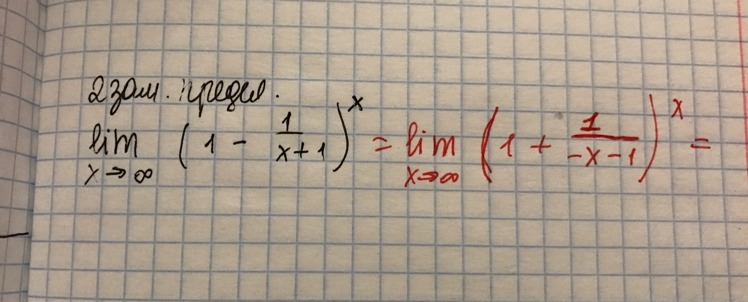 2 зам. предел.
lim (1 - 1/(x+1))^x = lim (1 + 1/(-x-1))^x =
x→∞ x→∞